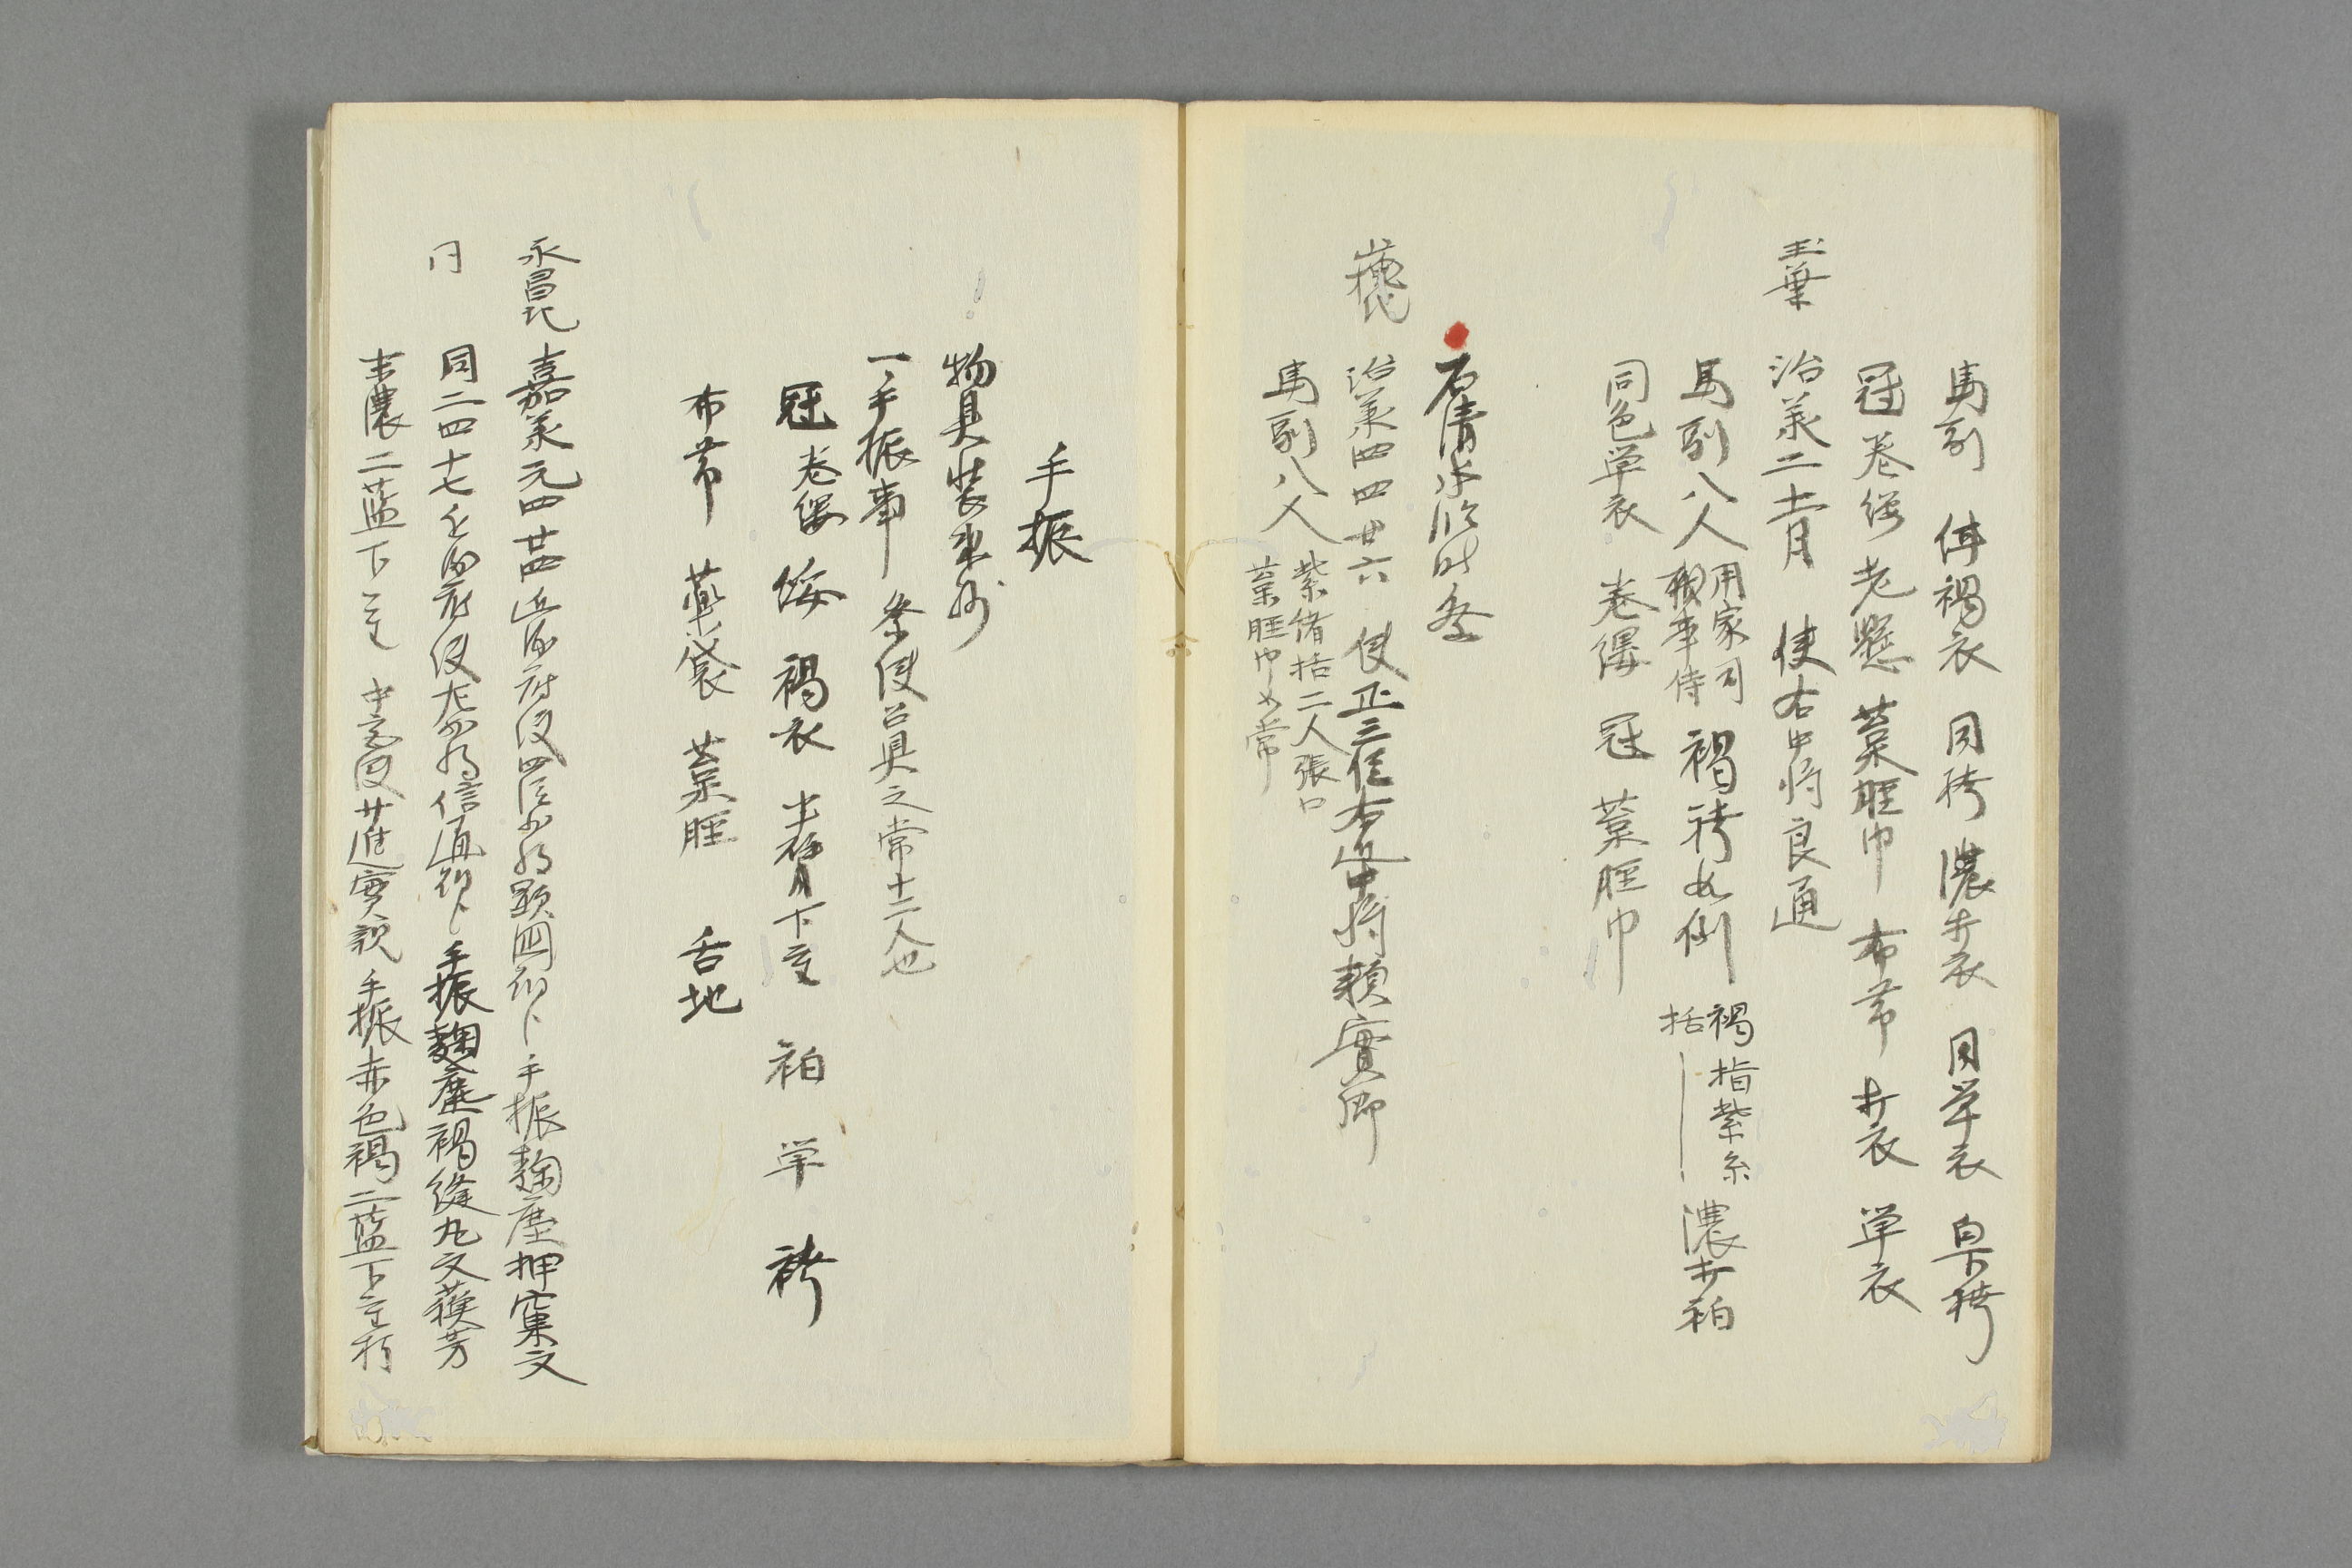 馬副 件褐衣 同袴 濃打衣 同単衣 白下袴
冠 巻纓 老懸 藁脛巾 布帯 打衣 単衣
玉葉 治承二十一月 使右中将良通
馬副八人 用家司
職事侍 褐袴如例 褐指紫糸
括 濃打袙
同色単衣 巻纓 冠 藁脛巾
石清水臨時祭
治承四四廿六 使正三位右中将頼實卿
馬副八人 紫緒括二人張口
藁脛巾如常
手振
物具装束抄
一手振事 祭使召具之常十二人也
冠 巻纓 緌 褐衣 半臂 下重 袙 単 袴
布帯 薬袋 藁脛 舌地
永昌記 嘉承元四廿四 近衛府使四位少将顕国 手振麹塵押窠文
同 同二四十七 近衛府使左少将信通 手振麹塵褐縫丸文蘇芳
末濃二藍下重 中宮使 進實 手振赤色褐二藍下重朽